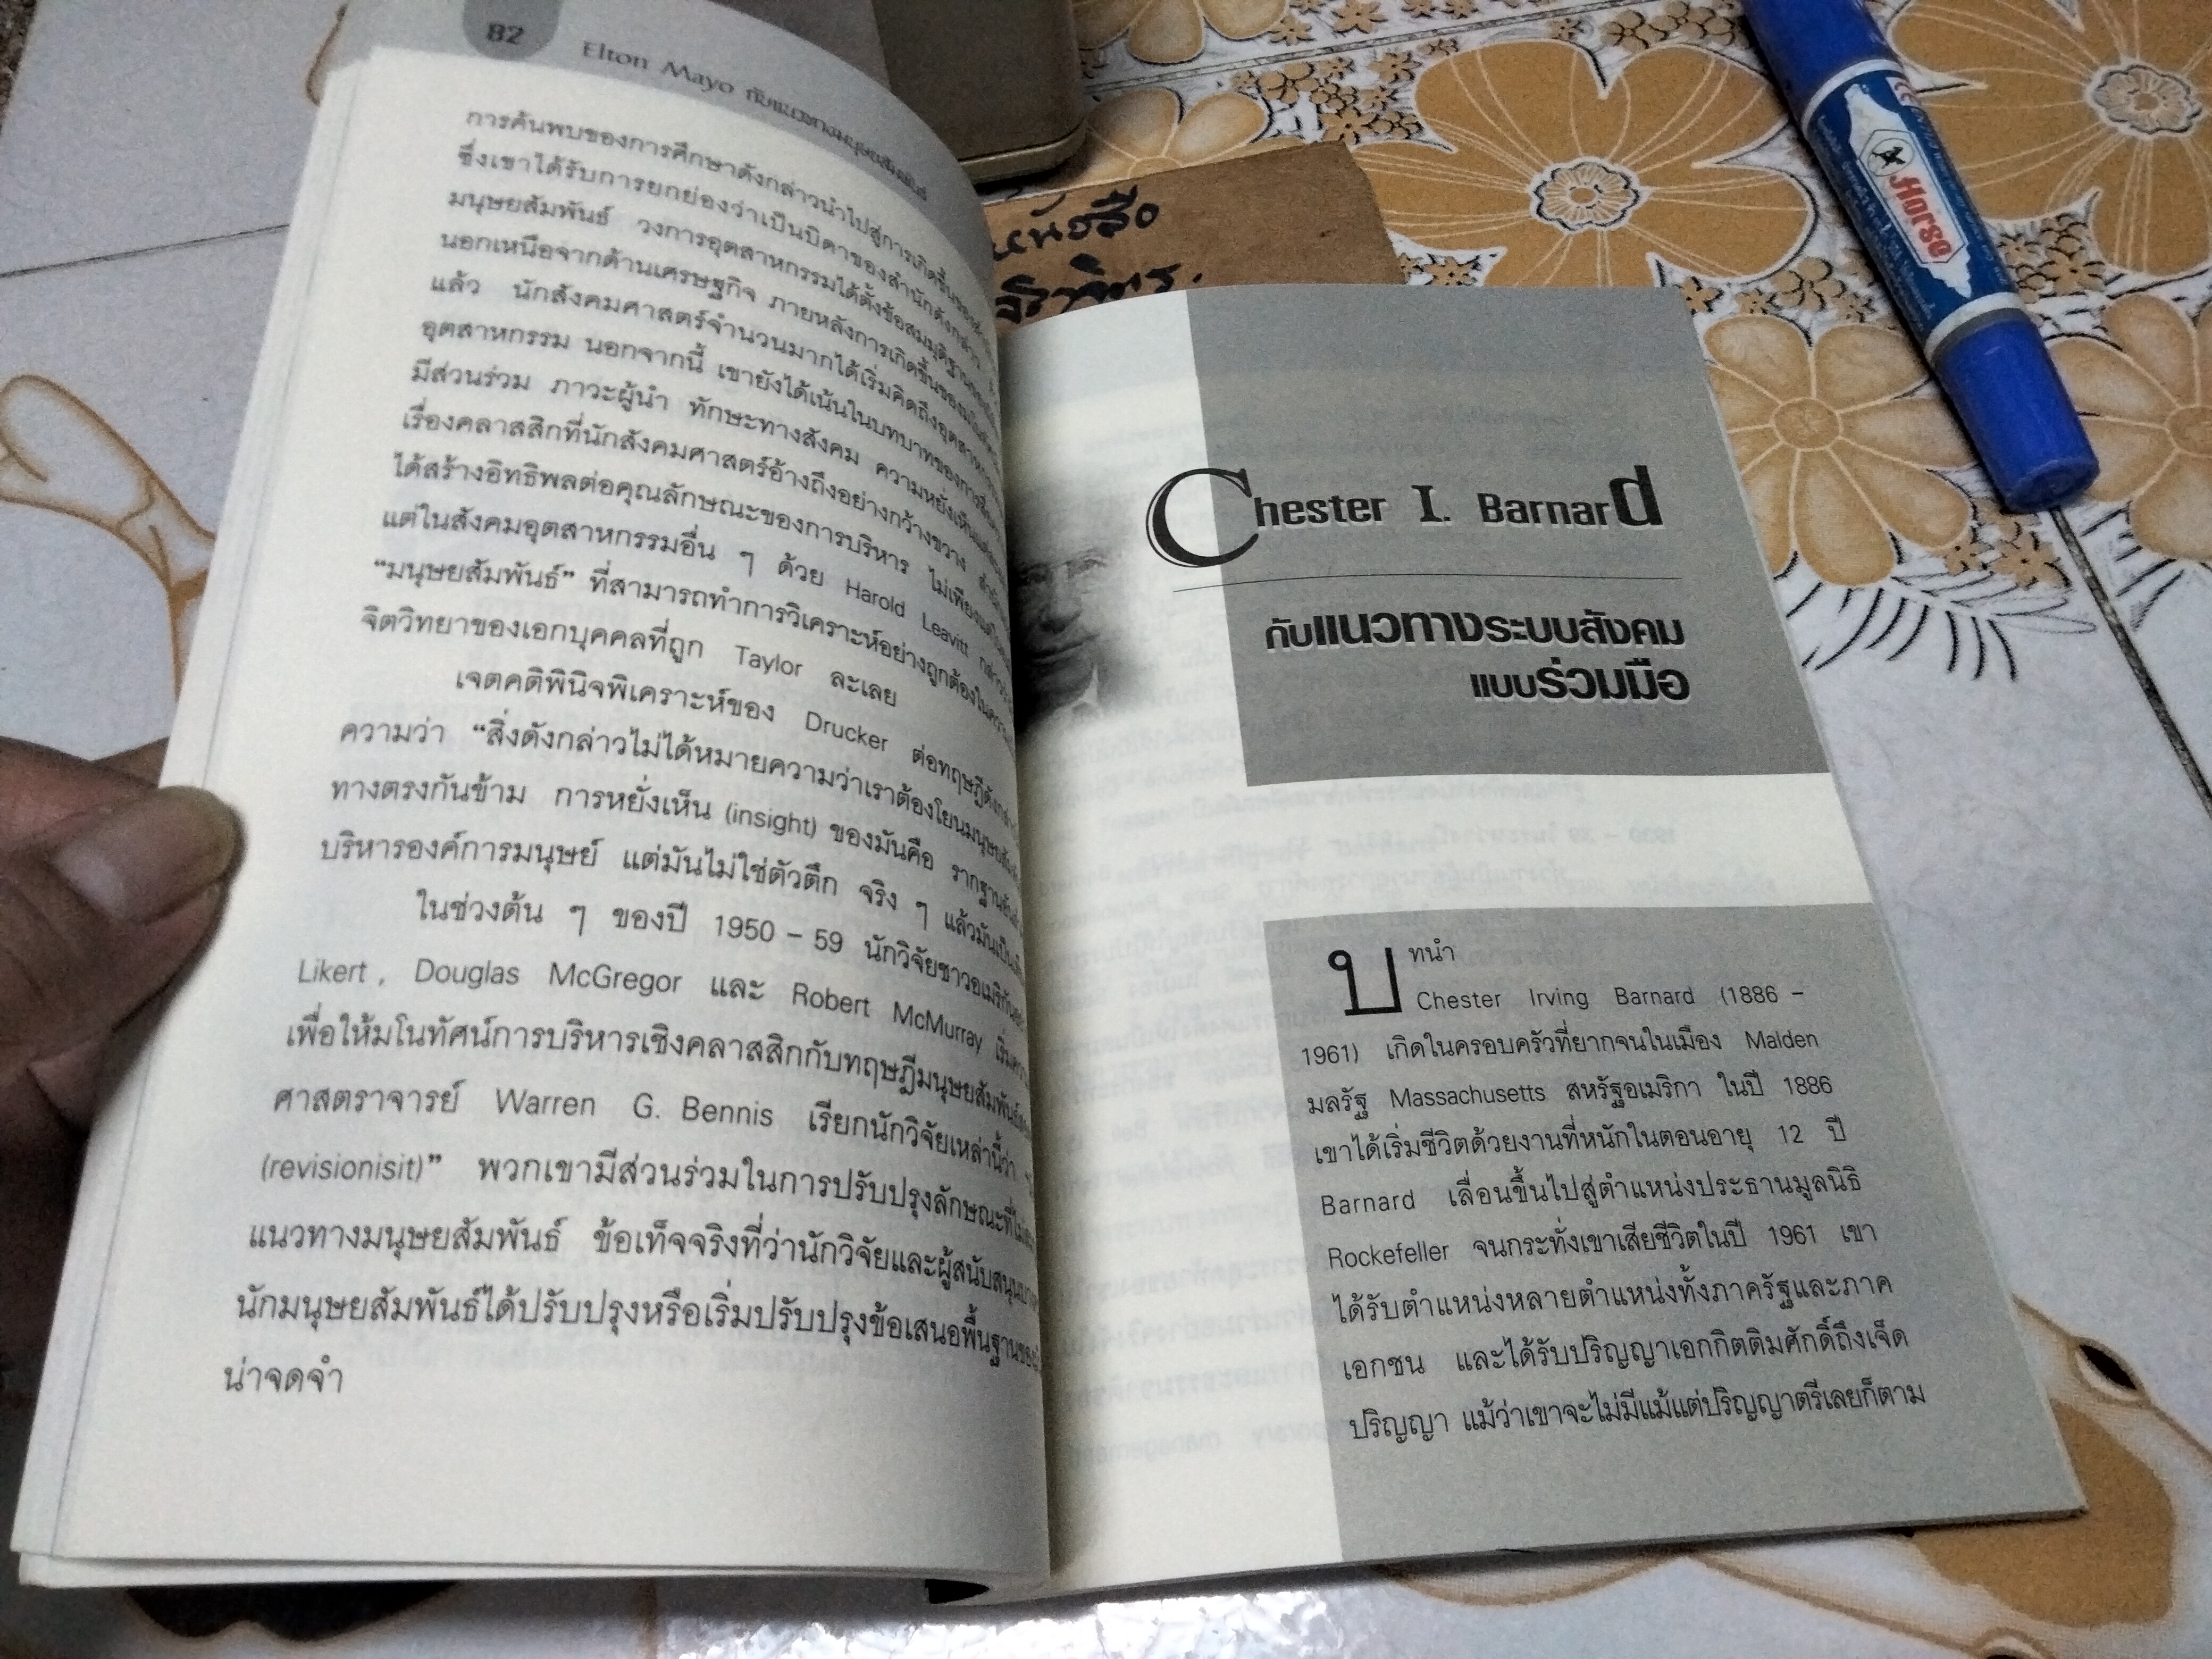 82
Elton Mayo กับแนวทางมนุษยสัมพันธ์
การค้นพบของการศึกษาดังกล่าวนำไปสู่การเกิดขึ้นของ
ซึ่งเขาได้รับการยกย่องว่าเป็นบิดาของสำนักดังกล่าว
มนุษยสัมพันธ์ วงการอุตสาหกรรมได้ตั้งข้อสมมุติฐาน
นอกเหนือจากด้านเศรษฐกิจ ภายหลังการเกิดขึ้นของ
แล้ว นักสังคมศาสตร์จำนวนมากได้เริ่มคิดถึง
อุตสาหกรรม นอกจากนี้ เขายังได้เน้นในบทบาทของการ
มีส่วนร่วม ภาวะผู้นำ ทักษะทางสังคม ความหยั่งเห็น
เรื่องคลาสสิกที่นักสังคมศาสตร์อ้างถึงอย่างกว้างขวาง
ได้สร้างอิทธิพลต่อคุณลักษณะของการบริหาร ไม่เพียงแต่
แต่ในสังคมอุตสาหกรรมอื่น ๆ ด้วย Harold Leavitt กล่าว
“มนุษยสัมพันธ์” ที่สามารถทำการวิเคราะห์อย่างถูกต้องใน
จิตวิทยาของเอกบุคคลที่ถูก Taylor ละเลย
เจตคติพินิจพิเคราะห์ของ Drucker ต่อทฤษฎี
ความว่า “สิ่งดังกล่าวไม่ได้หมายความว่าเราต้องโยนมนุษยสัมพันธ์
ทางตรงกันข้าม การหยั่งเห็น (insight) ของมันคือ รากฐาน
บริหารองค์การมนุษย์ แต่มันไม่ใช่ตัวตึก จริง ๆ แล้วมันเป็น
ในช่วงต้น ๆ ของปี 1950 – 59 นักวิจัยชาวอเมริกัน
Likert , Douglas McGregor และ Robert McMurray เริ่ม
เพื่อให้มโนทัศน์การบริหารเชิงคลาสสิกกับทฤษฎีมนุษยสัมพันธ์
ศาสตราจารย์ Warren G. Bennis เรียกนักวิจัยเหล่านี้ว่า
(revisionisit)” พวกเขามีส่วนร่วมในการปรับปรุงลักษณะที่
แนวทางมนุษยสัมพันธ์ ข้อเท็จจริงที่ว่านักวิจัยและผู้สนับสนุน
นักมนุษยสัมพันธ์ได้ปรับปรุงหรือเริ่มปรับปรุงข้อเสนอพื้นฐานของ
น่าจดจำ
หนังสือ
Horse
Chester I. Barnard
กับแนวทางระบบสังคม
แบบร่วมมือ
บทนำ
Chester Irving Barnard (1886 –
1961) เกิดในครอบครัวที่ยากจนในเมือง Malden
มลรัฐ Massachusetts สหรัฐอเมริกา ในปี 1886
เขาได้เริ่มชีวิตด้วยงานที่หนักในตอนอายุ 12 ปี
Barnard เลื่อนขึ้นไปสู่ตำแหน่งประธานมูลนิธิ
Rockefeller จนกระทั่งเขาเสียชีวิตในปี 1961 เขา
ได้รับตำแหน่งหลายตำแหน่งทั้งภาครัฐและภาค
เอกชน และได้รับปริญญาเอกกิตติมศักดิ์ถึงเจ็ด
ปริญญา แม้ว่าเขาจะไม่มีแม้แต่ปริญญาตรีเลยก็ตาม